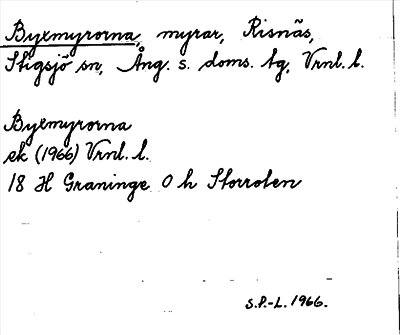 Byxmyrorna, myrar, Risnäs,
Stigsjö sn, Ång. s. doms. tg, Vrnl. l.
Byxmyrorna
ek (1966) Vrnl. l.
18 H Graninge 0 h Storroten
S.P.-L. 1966.